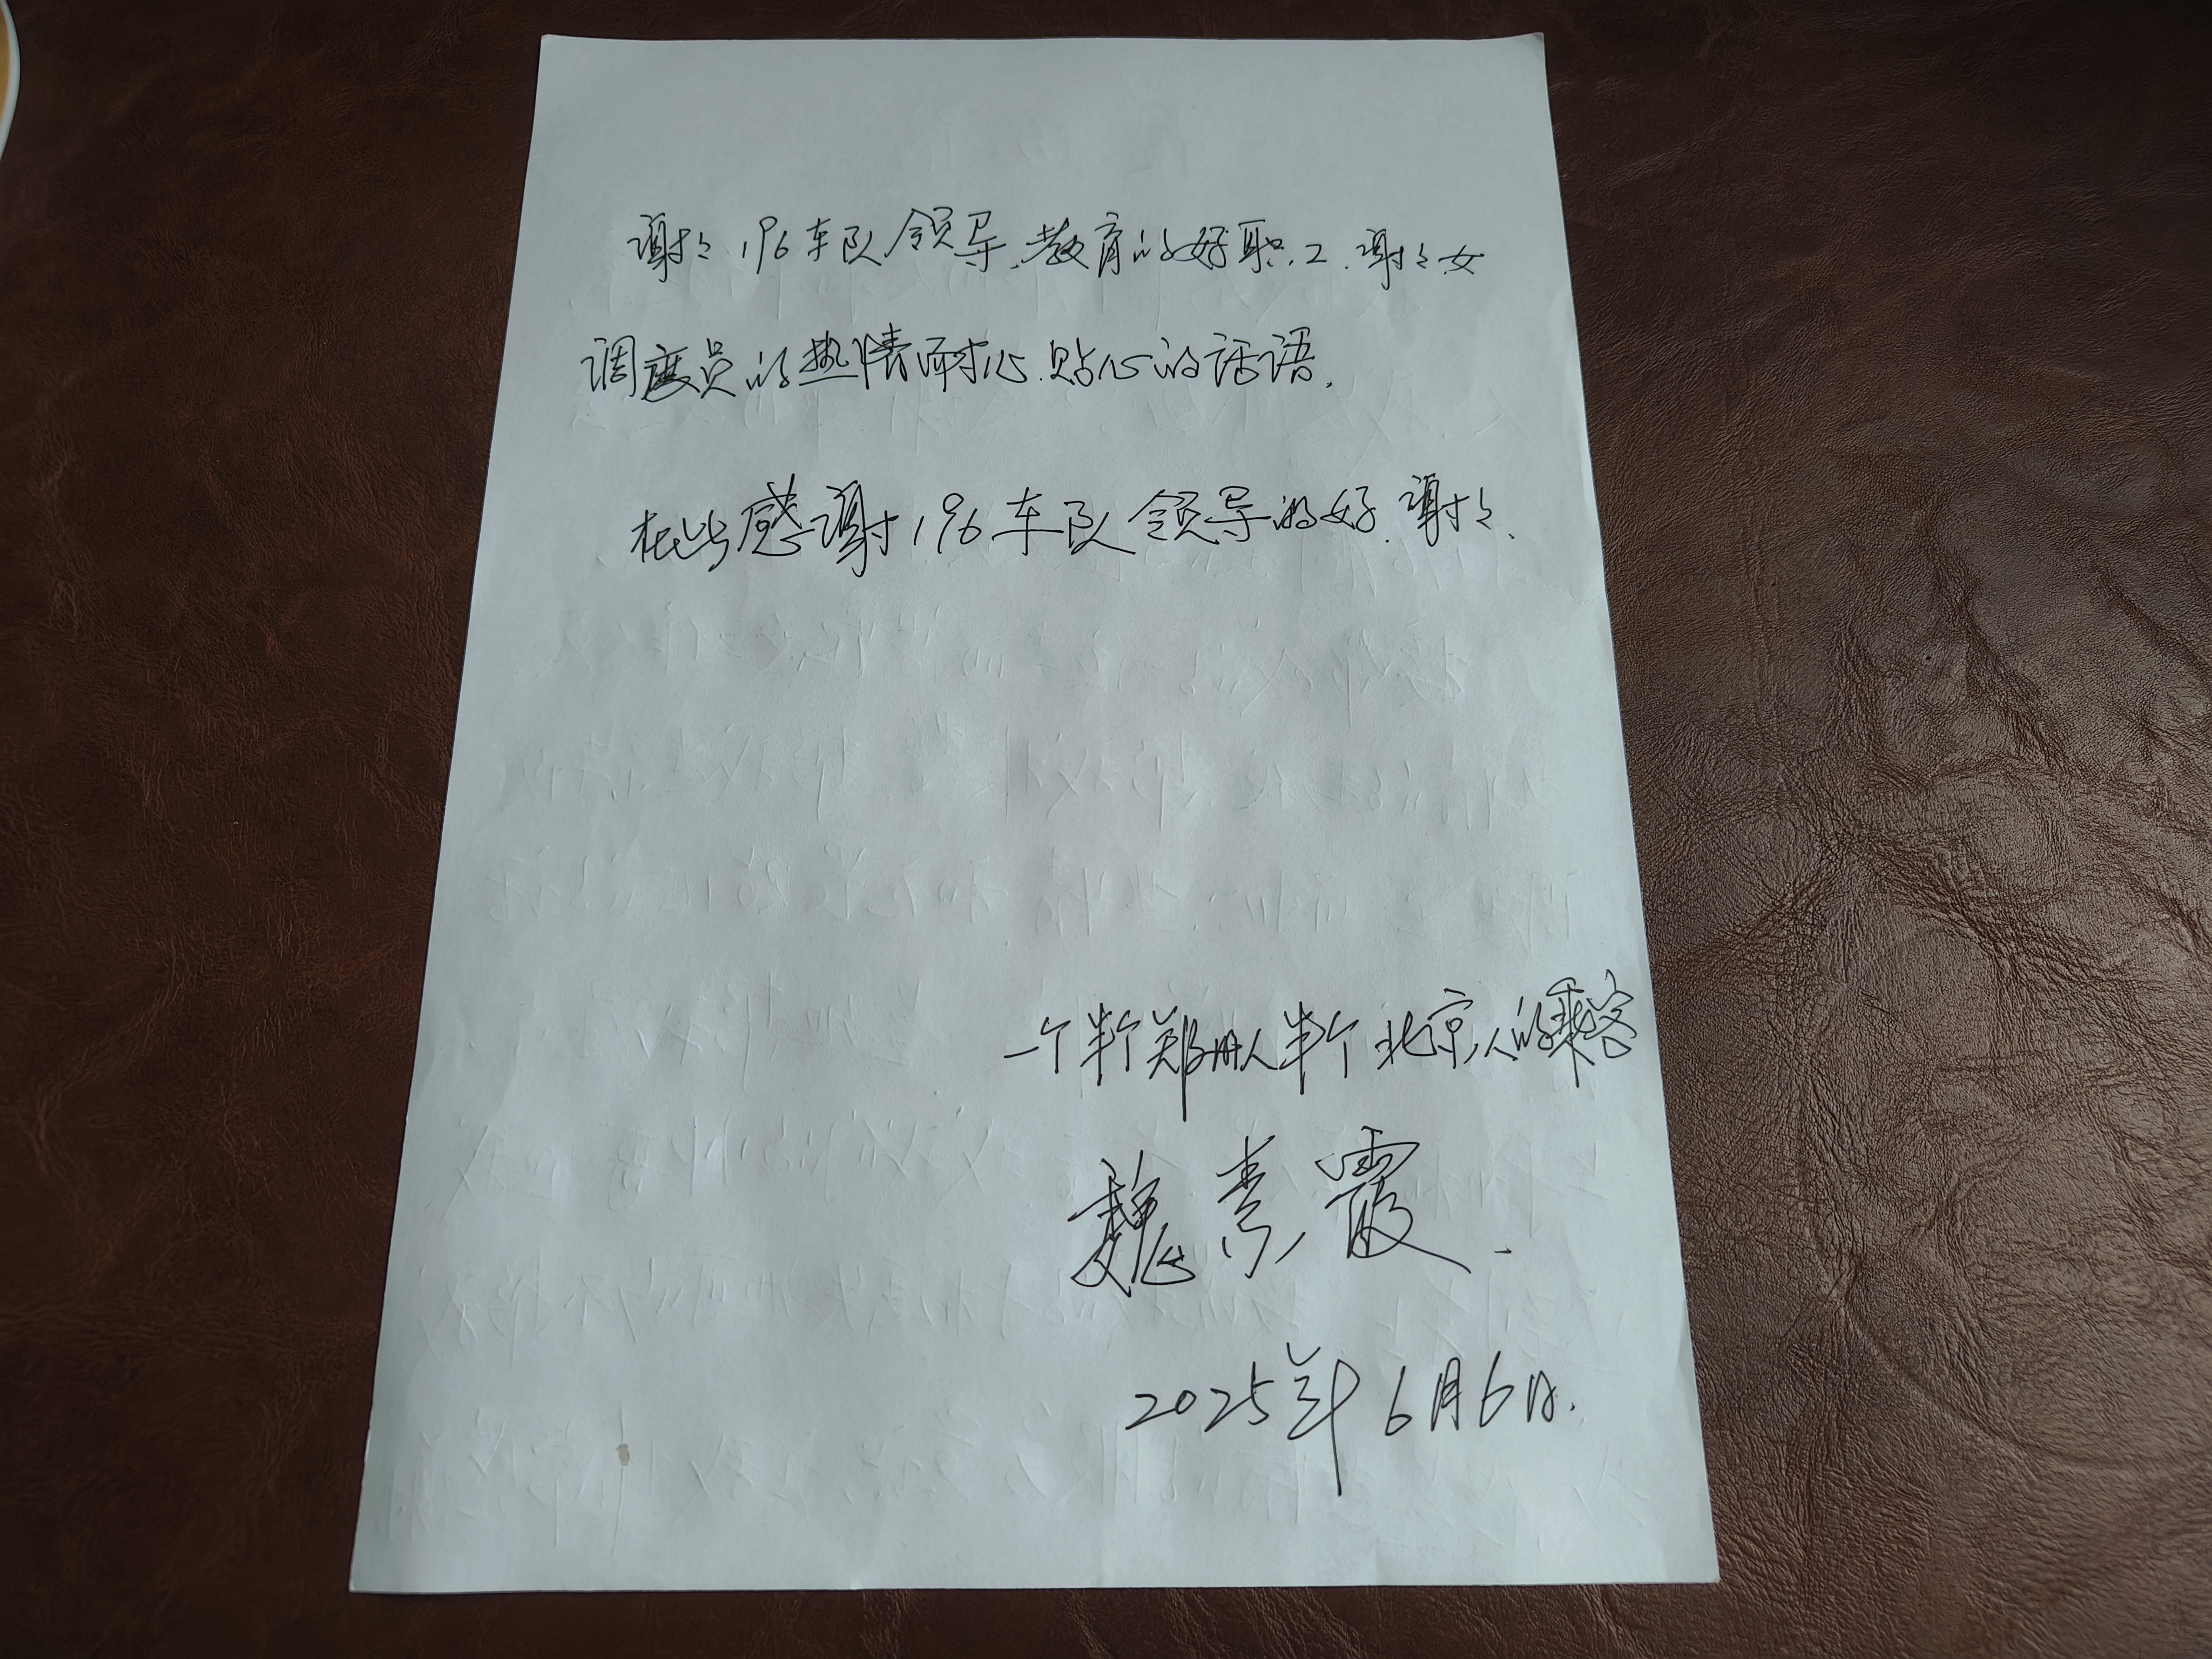 谢谢196车队领导.教育的好职工.谢谢女
调度员的热情耐心.贴心的话语.
在此感谢196车队领导的好.谢谢.
一个半个郑州人半个北京人的乘客
魏素霞.
2025年6月6日.